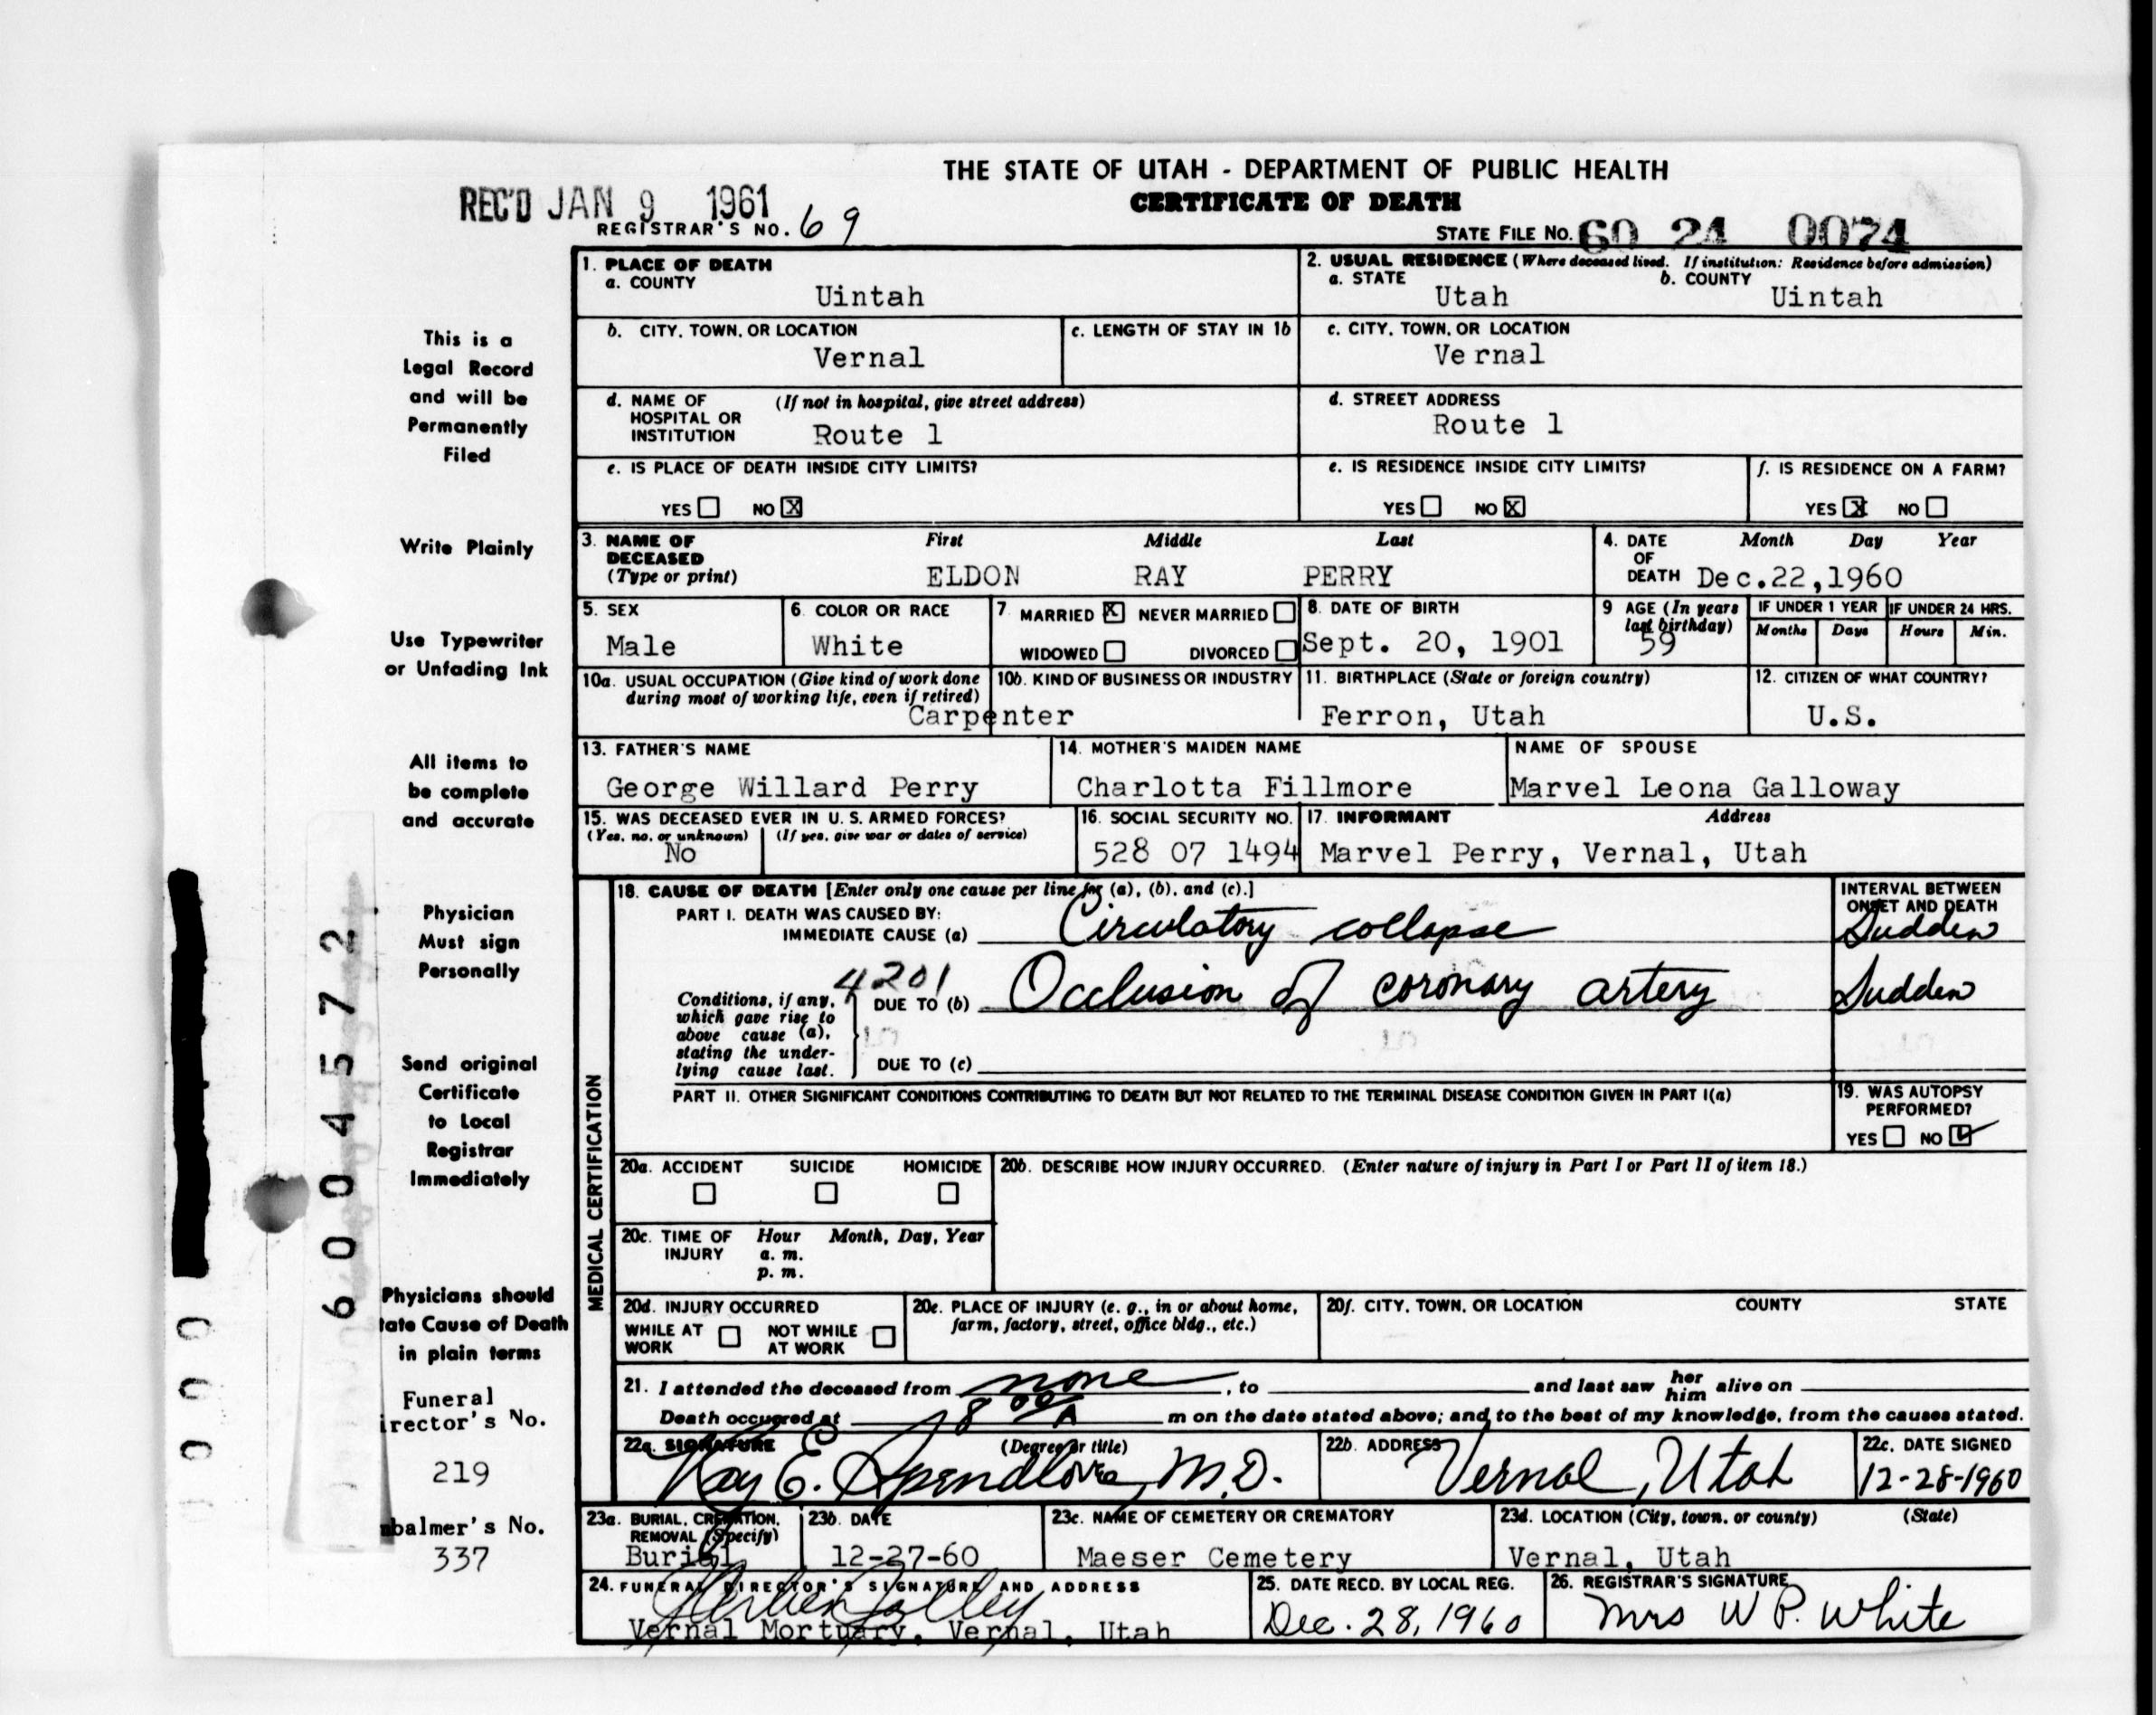 THE STATE OF UTAH - DEPARTMENT OF PUBLIC HEALTH
CERTIFICATE OF DEATH
REC'D JAN 9 1961
REGISTRAR'S NO. 69
STATE FILE NO. 60 24 0074
1. PLACE OF DEATH
a. COUNTY
Uintah
2. USUAL RESIDENCE (Where deceased lived. If institution: Residence before admission)
a. STATE b. COUNTY
Utah Uintah
b. CITY, TOWN, OR LOCATION
Vernal
c. LENGTH OF STAY IN 1b
c. CITY, TOWN, OR LOCATION
Ve rnal
d. NAME OF HOSPITAL OR INSTITUTION (If not in hospital, give street address)
Route 1
d. STREET ADDRESS
Route 1
e. IS PLACE OF DEATH INSIDE CITY LIMITS?
YES NO X
e. IS RESIDENCE INSIDE CITY LIMITS?
YES NO X
f. IS RESIDENCE ON A FARM?
YES X NO
3. NAME OF DECEASED (Type or print)
First Middle Last
ELDON RAY PERRY
4. DATE OF DEATH Month Day Year
Dec.22,1960
5. SEX
Male
6. COLOR OR RACE
White
7. MARRIED X NEVER MARRIED
WIDOWED DIVORCED
8. DATE OF BIRTH
Sept. 20, 1901
9 AGE (In years last birthday)
59
IF UNDER 1 YEAR
Months Days
IF UNDER 24 HRS.
Hours Min.
10a. USUAL OCCUPATION (Give kind of work done during most of working life, even if retired)
Carpenter
10b. KIND OF BUSINESS OR INDUSTRY
11. BIRTHPLACE (State or foreign country)
Ferron, Utah
12. CITIZEN OF WHAT COUNTRY?
U.S.
13. FATHER'S NAME
George Willard Perry
14. MOTHER'S MAIDEN NAME
Charlotta Fillmore
NAME OF SPOUSE
Marvel Leona Galloway
15. WAS DECEASED EVER IN U.S. ARMED FORCES?
(Yes, no, or unknown) (If yes, give war or dates of service)
No
16. SOCIAL SECURITY NO.
528 07 1494
17. INFORMANT Address
Marvel Perry, Vernal, Utah
MEDICAL CERTIFICATION
18. CAUSE OF DEATH [Enter only one cause per line for (a), (b), and (c).]
PART I. DEATH WAS CAUSED BY:
IMMEDIATE CAUSE (a) Circulatory collapse
INTERVAL BETWEEN ONSET AND DEATH
Sudden
4201
Conditions, if any, which gave rise to above cause (a), stating the underlying cause last.
DUE TO (b) Occlusion of coronary artery
Sudden
DUE TO (c)
PART II. OTHER SIGNIFICANT CONDITIONS CONTRIBUTING TO DEATH BUT NOT RELATED TO THE TERMINAL DISEASE CONDITION GIVEN IN PART I(a)
19. WAS AUTOPSY PERFORMED?
YES NO
20a. ACCIDENT SUICIDE HOMICIDE
20b. DESCRIBE HOW INJURY OCCURRED. (Enter nature of injury in Part I or Part II of item 18.)
20c. TIME OF INJURY Hour Month, Day, Year
a. m.
p. m.
20d. INJURY OCCURRED
WHILE AT WORK NOT WHILE AT WORK
20e. PLACE OF INJURY (e. g., in or about home, farm, factory, street, office bldg., etc.)
20f. CITY, TOWN, OR LOCATION COUNTY STATE
21. I attended the deceased from none, to and last saw her him alive on
Death occurred at 8 00 A m on the date stated above; and to the best of my knowledge, from the causes stated.
22a. SIGNATURE (Degree or title)
Ray E. Spendlove M.D.
22b. ADDRESS
Vernal, Utah
22c. DATE SIGNED
12-28-1960
23a. BURIAL, CREMATION, REMOVAL (Specify)
Burial
23b. DATE
12-27-60
23c. NAME OF CEMETERY OR CREMATORY
Maeser Cemetery
23d. LOCATION (City, town, or county) (State)
Vernal, Utah
24. FUNERAL DIRECTOR'S SIGNATURE AND ADDRESS
Vernal Mortuary, Vernal, Utah
25. DATE RECD. BY LOCAL REG.
Dec. 28, 1960
26. REGISTRAR'S SIGNATURE
Mrs W P. White
This is a
Legal Record
and will be
Permanently
Filed
Write Plainly
Use Typewriter
or Unfading Ink
All items to
be complete
and accurate
Physician
Must sign
Personally
Send original
Certificate
to Local
Registrar
Immediately
Physicians should
tate Cause of Death
in plain terms
Funeral
irector's No.
219
balmer's No.
337
6004572